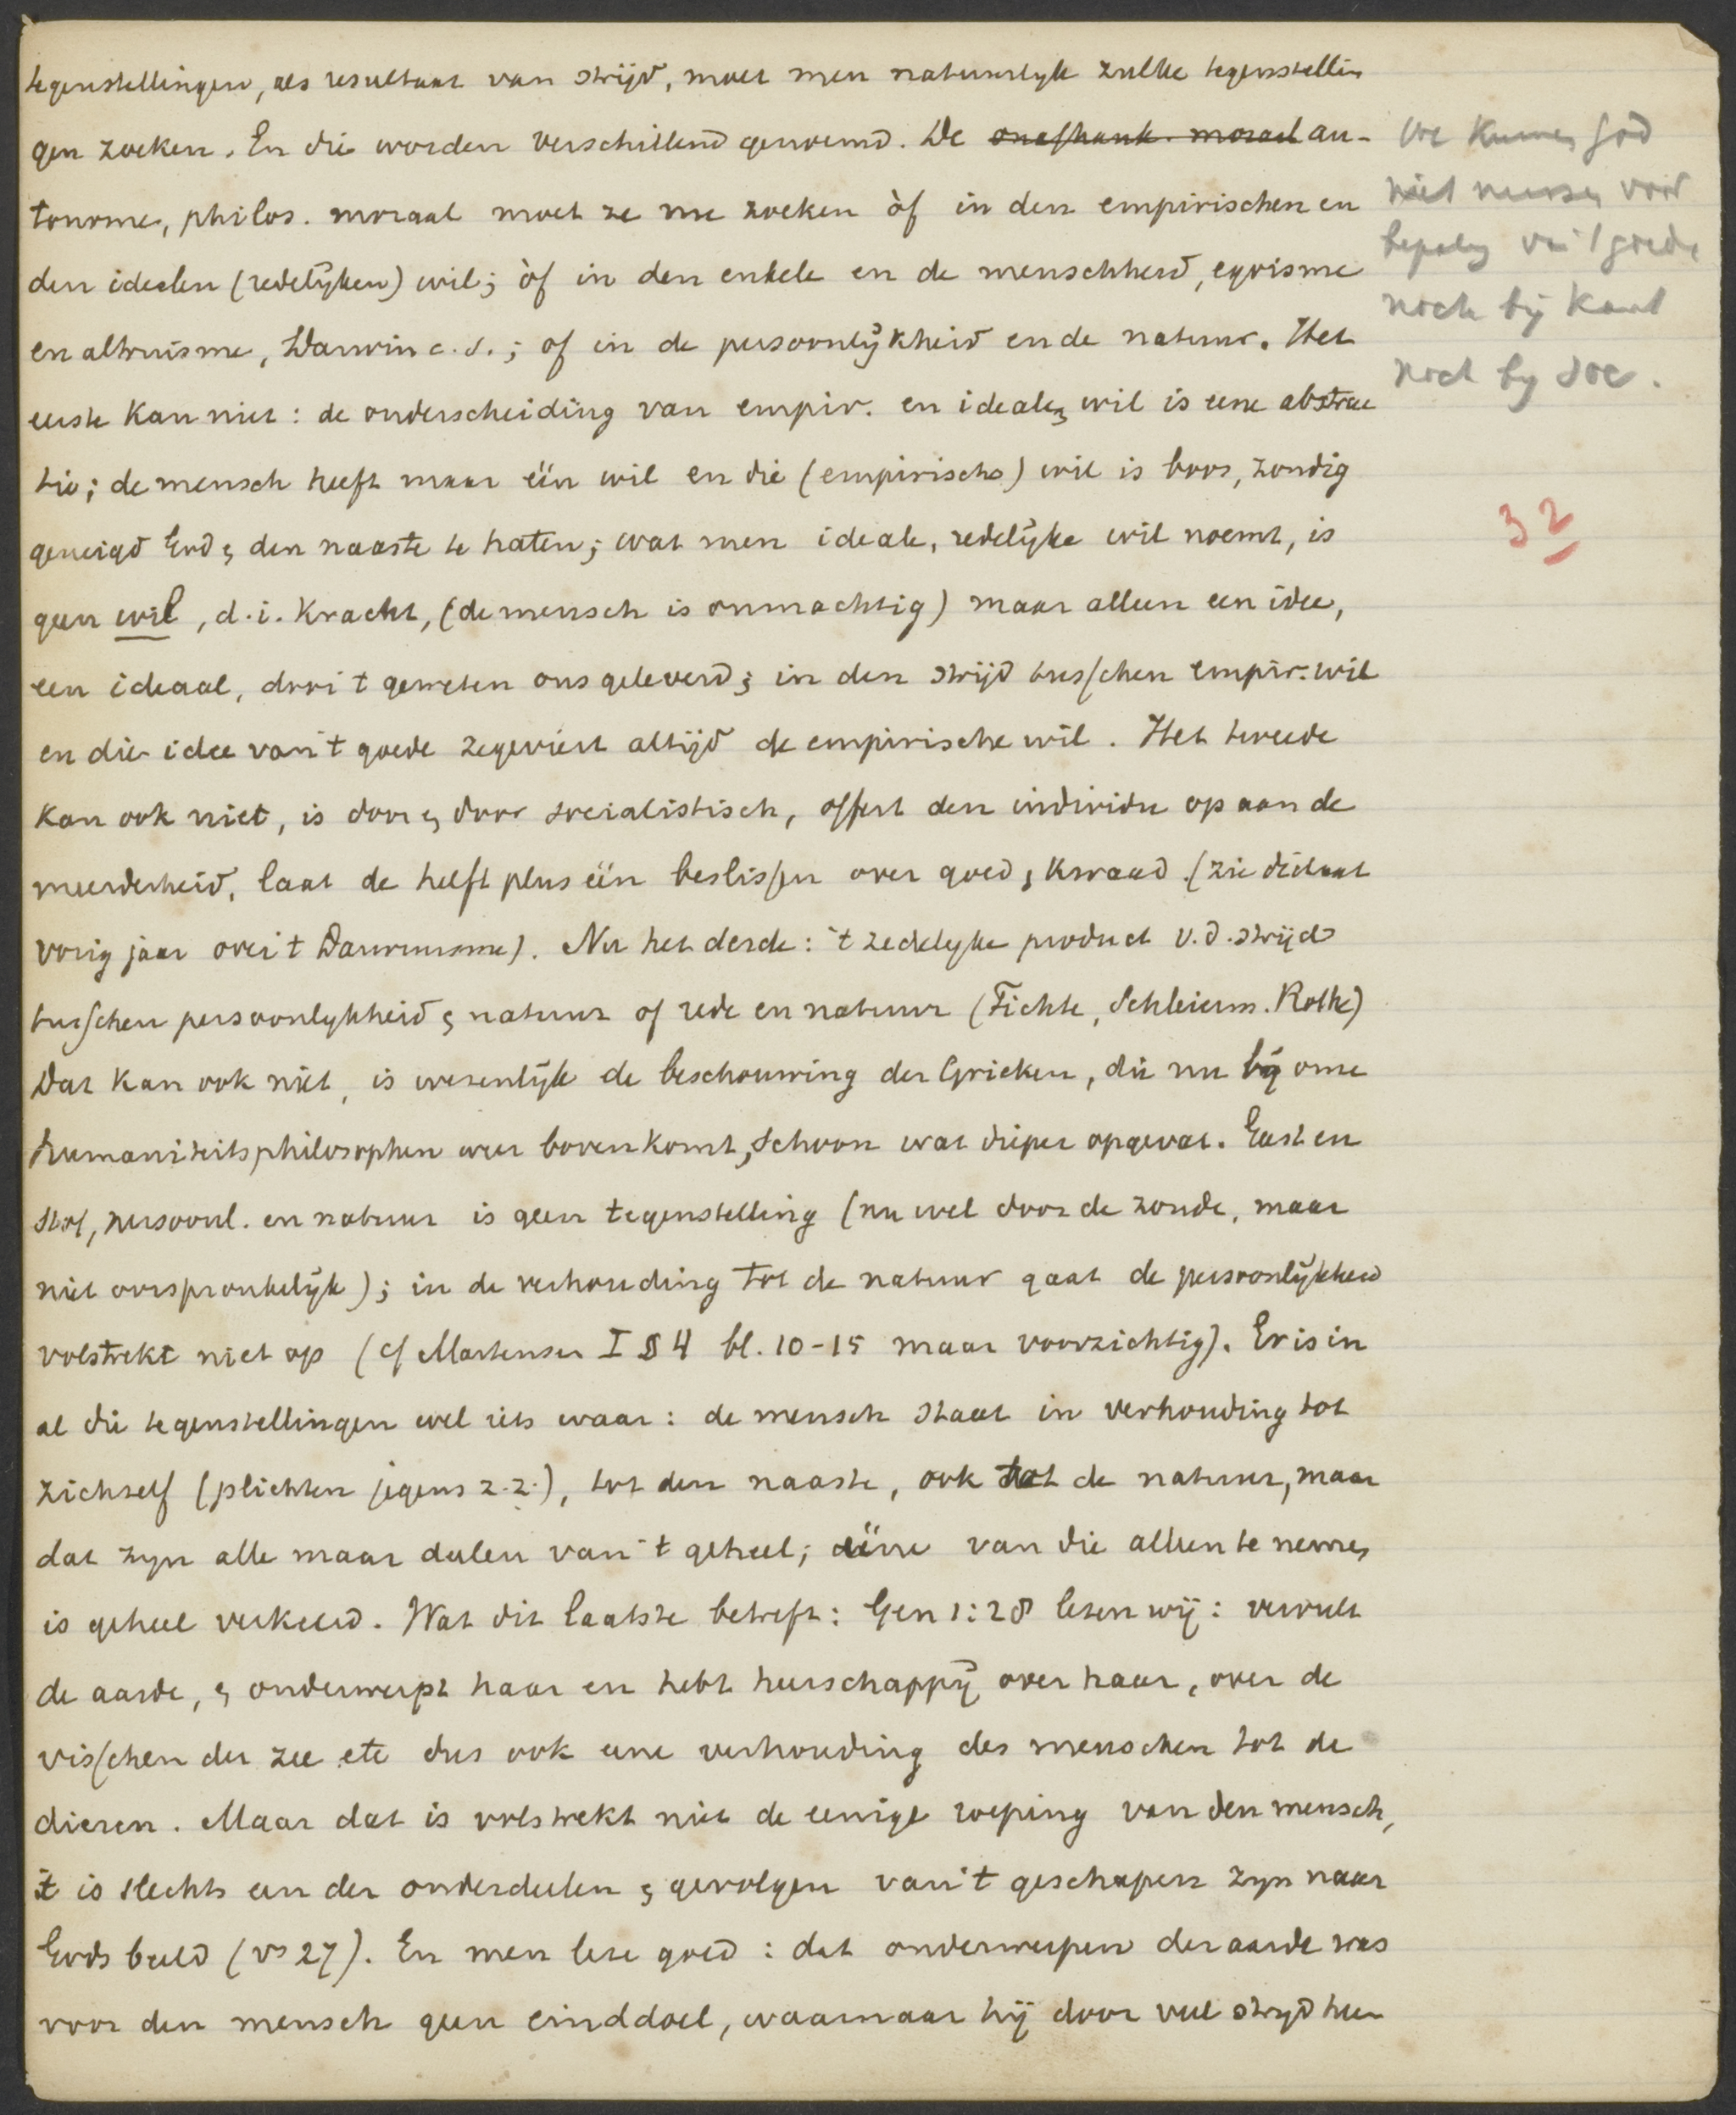 tegenstellingen, als resultaat van strijd, moet men natuurlyk zulke tegenstellin
gen zoeken. En die worden verschillend genoemd. De onafhank. moraal au-
tonome, philos. moraal moet ze nu zoeken òf in den empirischen en
den idealen (redelijken) wil; òf in den enkele en de menschheid, egoisme
en altruisme, Darwin c.s.; of in de persoonlijkheid en de natuur. Het
eerste kan niet: de onderscheiding van empir. en idealen wil is eene abstrac
tie; de mensch heeft maar één wil en die (empirische) wil is boos, zondig
geneigd God & den naaste te haten; wat men ideale, redelijke wil noemt, is
geen wil, d.i. kracht, (de mensch is onmachtig) maar alleen een idee,
een ideaal, door 't geweten ons geleverd; in den strijd tusschen empir. wil
en die idee van 't goede zegeviert altijd de empirische wil. Het tweede
kan ook niet, is door & door socialistisch, offert den individu op aan de
meerderheid, laat de helft plus één beslissen over goed & kwaad. (zie dictaat
vorig jaar over 't Darwinisme). Nu het derde: 't zedelyke product v.d. strijd
tusschen persoonlykheid & natuur of rede en natuur (Fichte, Schleierm. Rothe)
Dat kan ook niet, is wezenlijk de beschouwing der Grieken, die nu bij onze
humaniteitsphilosophen weer boven komt, schoon wat dieper opgevat. Geest en
stof, persoonl. en natuur is geen tegenstelling (nu wel door de zonde, maar
niet oorspronkelijk); in de verhouding tot de natuur gaat de persoonlijkheid
volstrekt niet op (cf Martensen I § 4 bl. 10-15 maar voorzichtig). Er is in
al die tegenstellingen wel iets waar: de mensch staat in verhouding tot
zichself (plichten jegens z.z.), tot den naaste, ook tot de natuur, maar
dat zyn alle maar deelen van 't geheel; ééne van die alleen te nemen
is geheel verkeerd. Wat dit laatste betreft: Gen 1:28 lezen wij: vervult
de aarde, & onderwerpt haar en hebt heerschappij over haar, over de
visschen der zee etc dus ook eene verhouding des menschen tot de
dieren. Maar dat is volstrekt niet de eenige roeping van den mensch,
't is slechts een der onderdeelen & gevolgen van 't geschapen zyn naar
Gods beeld (vs 27). En men leze goed: dat onderwerpen der aarde was
voor den mensch geen einddoel, waarnaar hij door veel strijd heen
We kunnen God
niet missen voor
bepaling van 't goede
noch bij Kant
noch by soc.
32